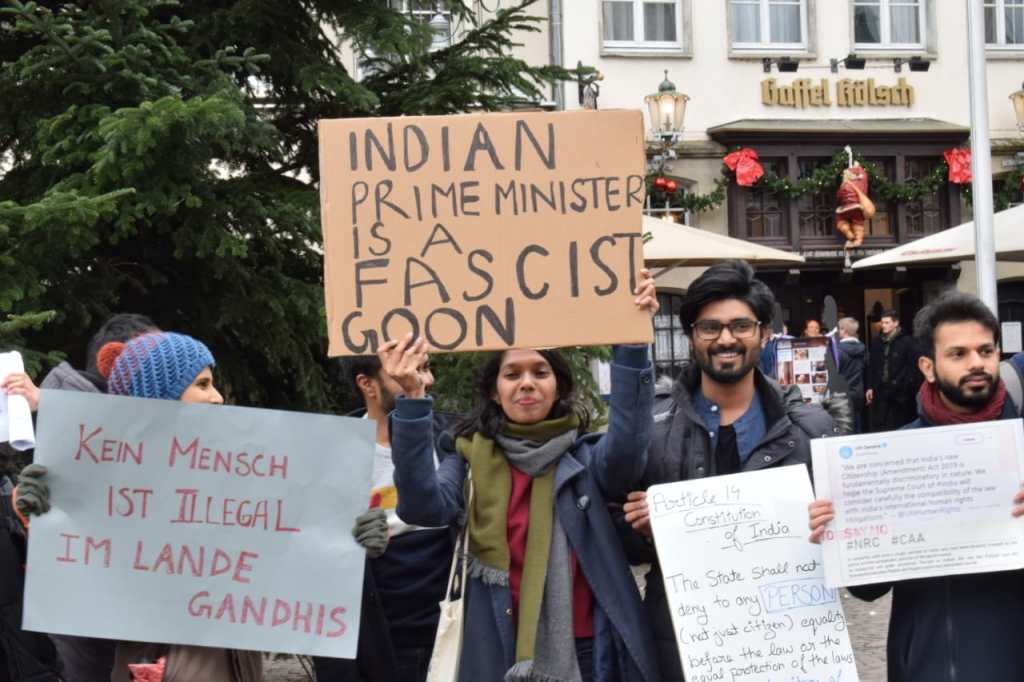 Gaffel Kölsch
INDIAN
PRIME MINISTER
IS A
FASCIST
GOON
KEIN MENSCH
IST ILLEGAL
IM LANDE
GANDHIS
Article 14
Constitution
of India
The State shall not
deny to any PERSON
(not just citizen) equality
before the law or the
equal protection of the laws
"We are concerned that India's new
Citizenship (Amendment) Act 2019 is
fundamentally discriminatory in nature. We
hope the Supreme Court of #India will
consider carefully the compatibility of the law
with India's international human rights
obligations."
SAY NO
TO
#NRC #CAA